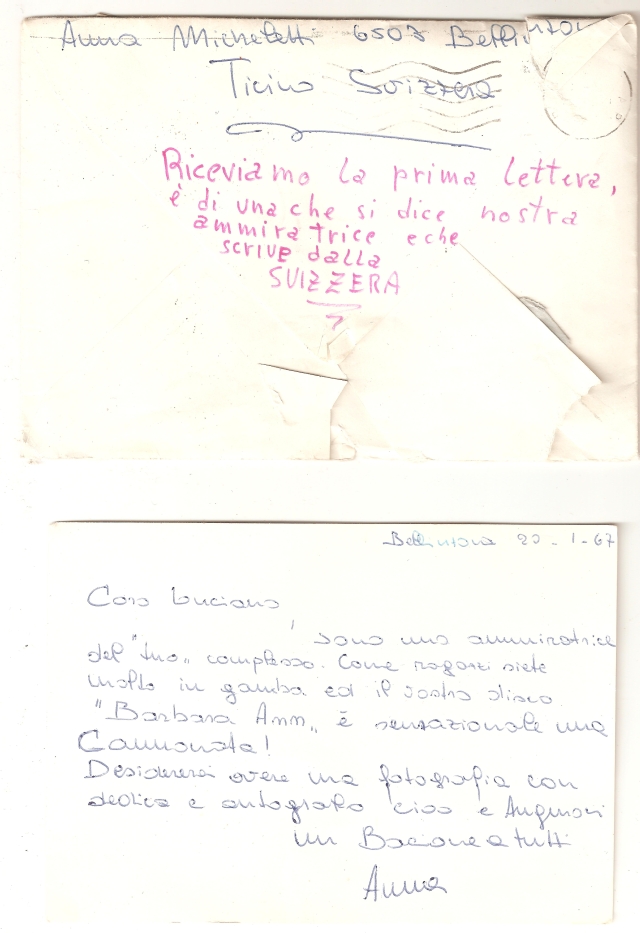 Anna Micheletti 6503 Bellinzona
Ticino Svizzera
Riceviamo la prima lettera,
è di una che si dice nostra
ammiratrice e che
scrive dalla
SVIZZERA
Bellinzona 20-1-67
Caro Luciano,
sono una ammiratrice
del "tuo" complesso. Come ragazzi siete
molto in gamba ed il vostro disco
"Barbara Ann" è sensazionale una
Cannonata!
Desidererei avere una fotografia con
dedica e autografo ciao e Auguroni
un Bacione a tutti
Anna